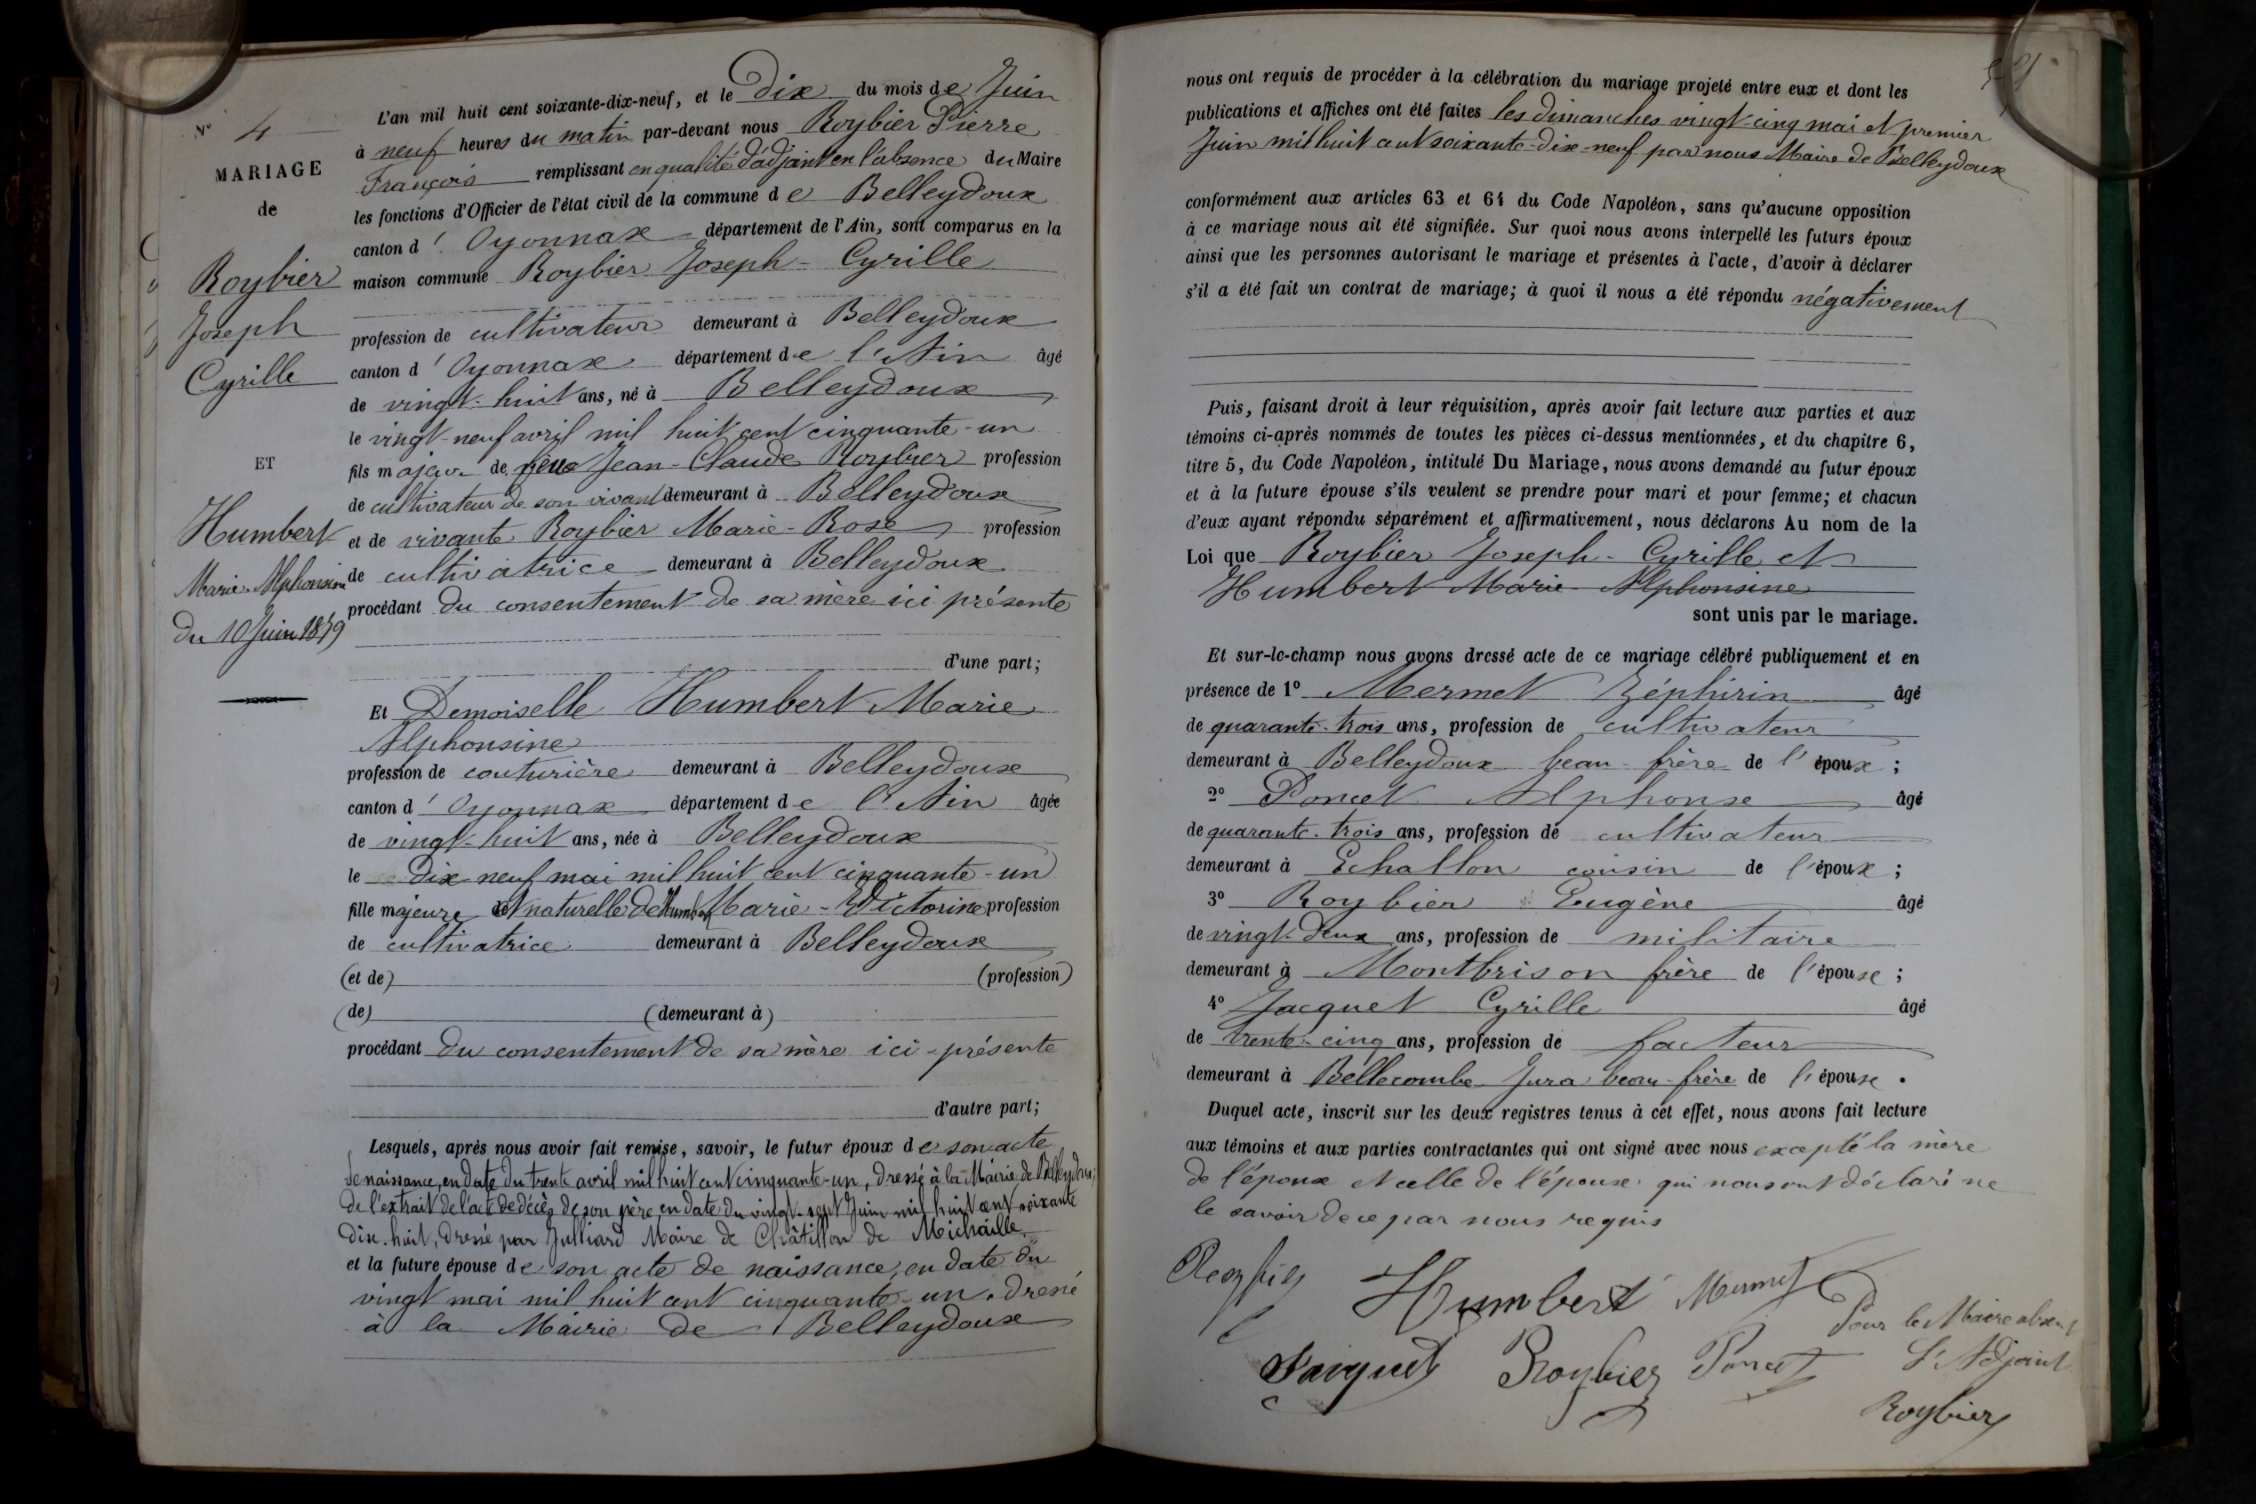 N° 4
MARIAGE
de
Roybier
Joseph
Cyrille
ET
Humbert
Marie-Alphonsine
du 10 Juin 1879
L'an mil huit cent soixante-dix-neuf, et le dix du mois de Juin
à neuf heures du matin par-devant nous Roybier Pierre
François remplissant en qualité d'adjoint en l'absence du Maire
les fonctions d'Officier de l'état civil de la commune de Belleydoux
canton d'Oyonnax département de l'Ain, sont comparus en la
maison commune Roybier Joseph-Cyrille
profession de cultivateur demeurant à Belleydoux
canton d'Oyonnax département de l'Ain âgé
de vingt-huit ans, né à Belleydoux
le vingt-neuf avril mil huit cent cinquante-un
fils majeur de feue Jean-Claude Roybier profession
de cultivateur de son vivant demeurant à Belleydoux
et de vivante Roybier Marie-Rose profession
de cultivatrice demeurant à Belleydoux
procédant du consentement de sa mère ici présente
d'une part;
Et Demoiselle Humbert Marie
Alphonsine
profession de couturière demeurant à Belleydoux
canton d'Oyonnax département de l'Ain âgée
de vingt-huit ans, née à Belleydoux
le dix neuf mai mil huit cent cinquante-un
fille majeure et naturelle de Humbert Marie-Victorine profession
de cultivatrice demeurant à Belleydoux
(et de) (profession)
(de) (demeurant à)
procédant du consentement de sa mère ici-présente
d'autre part;
Lesquels, après nous avoir fait remise, savoir, le futur époux de son acte
de naissance, en date du trente avril mil huit cent cinquante-un, dressé à la Mairie de Belleydoux;
de l'extrait de l'acte de décès de son père en date du vingt-sept Juin mil huit cent soixante
dix-huit, dressé par Julliard Maire de Châtillon de Michaille.
et la future épouse de son acte de naissance, en date du
vingt mai mil huit cent cinquante-un, dressé
à la Mairie de Belleydoux
nous ont requis de procéder à la célébration du mariage projeté entre eux et dont les
publications et affiches ont été faites les dimanches vingt-cinq mai et premier
Juin mil huit cent soixante-dix-neuf par nous Maire de Belleydoux
conformément aux articles 63 et 64 du Code Napoléon, sans qu'aucune opposition
à ce mariage nous ait été signifiée. Sur quoi nous avons interpellé les futurs époux
ainsi que les personnes autorisant le mariage et présentes à l'acte, d'avoir à déclarer
s'il a été fait un contrat de mariage; à quoi il nous a été répondu négativement
Puis, faisant droit à leur réquisition, après avoir fait lecture aux parties et aux
témoins ci-après nommés de toutes les pièces ci-dessus mentionnées, et du chapitre 6,
titre 5, du Code Napoléon, intitulé Du Mariage, nous avons demandé au futur époux
et à la future épouse s'ils veulent se prendre pour mari et pour femme; et chacun
d'eux ayant répondu séparément et affirmativement, nous déclarons Au nom de la
Loi que Roybier Joseph-Cyrille et
Humbert Marie-Alphonsine
sont unis par le mariage.
Et sur-le-champ nous avons dressé acte de ce mariage célébré publiquement et en
présence de 1° Mermet Zéphirin âgé
de quarante-trois ans, profession de cultivateur
demeurant à Belleydoux beau-frère de l'époux;
2° Poncet Alphonse âgé
de quarante-trois ans, profession de cultivateur
demeurant à Echallon cousin de l'époux;
3° Roybier Eugène âgé
de vingt-deux ans, profession de militaire
demeurant à Montbrison frère de l'épouse;
4° Jacquet Cyrille âgé
de trente-cinq ans, profession de facteur
demeurant à Bellecombe Jura beau-frère de l'épouse.
Duquel acte, inscrit sur les deux registres tenus à cet effet, nous avons fait lecture
aux témoins et aux parties contractantes qui ont signé avec nous excepté la mère
de l'époux et celle de l'épouse qui nous ont déclaré ne
le savoir de ce par nous requis
Roybier Humbert Mermet
Pour le Maire absent
Jacquet Roybier Poncet L'Adjoint
Roybier